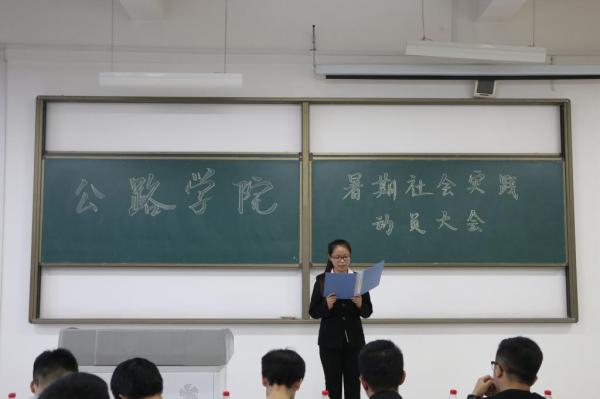 公路学院
暑期社会实践
动员大会